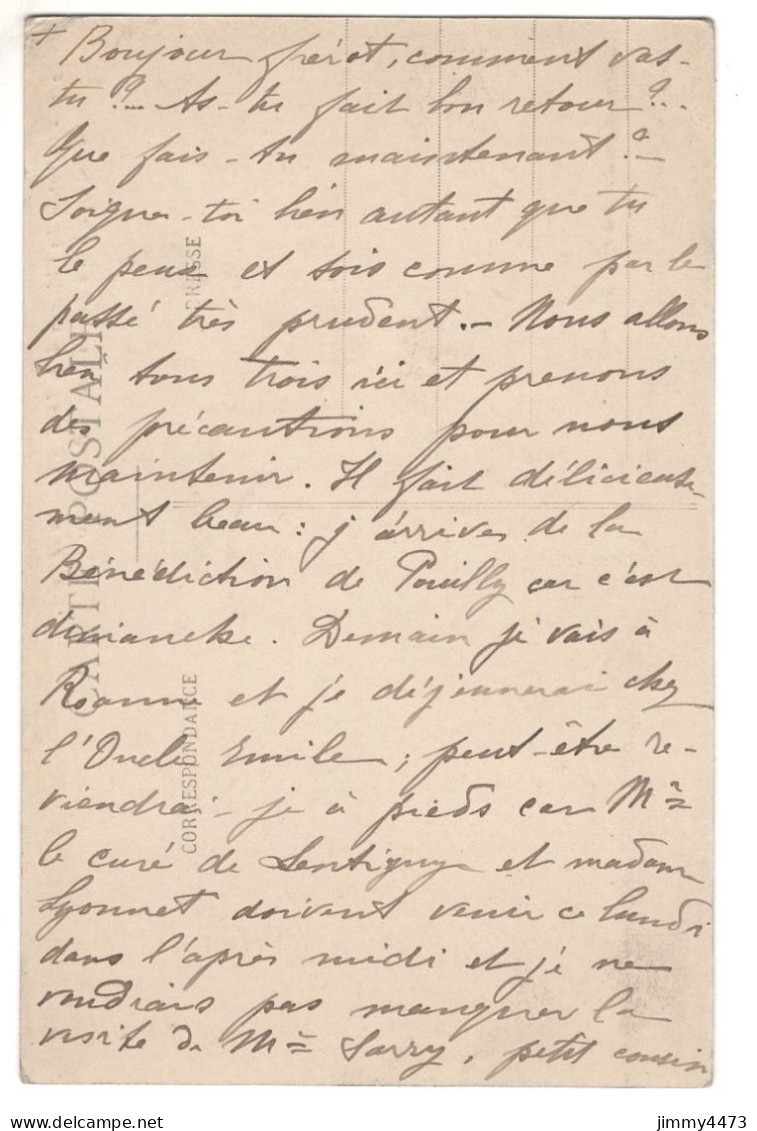 + Bonjour frérot, comment vas-
tu ?... As-tu fait bon retour ?..
Que fais-tu maintenant ? -
Soigne-toi bien autant que tu
le peux et sois comme par le
passé très prudent. - Nous allons
bien tous trois ici et prenons
des précautions pour nous
maintenir. Il fait délicieuse-
ment beau : j'arrive de la
Bénédiction de Pouilly car c'est
dimanche. Demain je vais à
Roanne et je déjeunerai chez
l'Oncle Emile ; peut-être re-
viendrai-je à pieds car Mr
le curé de Lentigny et madame
Lyonnet doivent venir ce lundi
dans l'après midi et je ne
voudrais pas manquer la
visite de Mr Sarry, petit cousin
CARTE POSTALE
CORRESPONDANCE
ADRESSE
jimmy4473